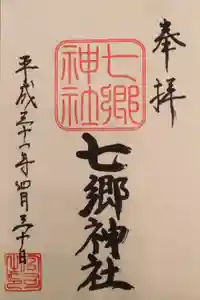 奉拝
七郷神社
七郷神社
平成三十一年四月三十日